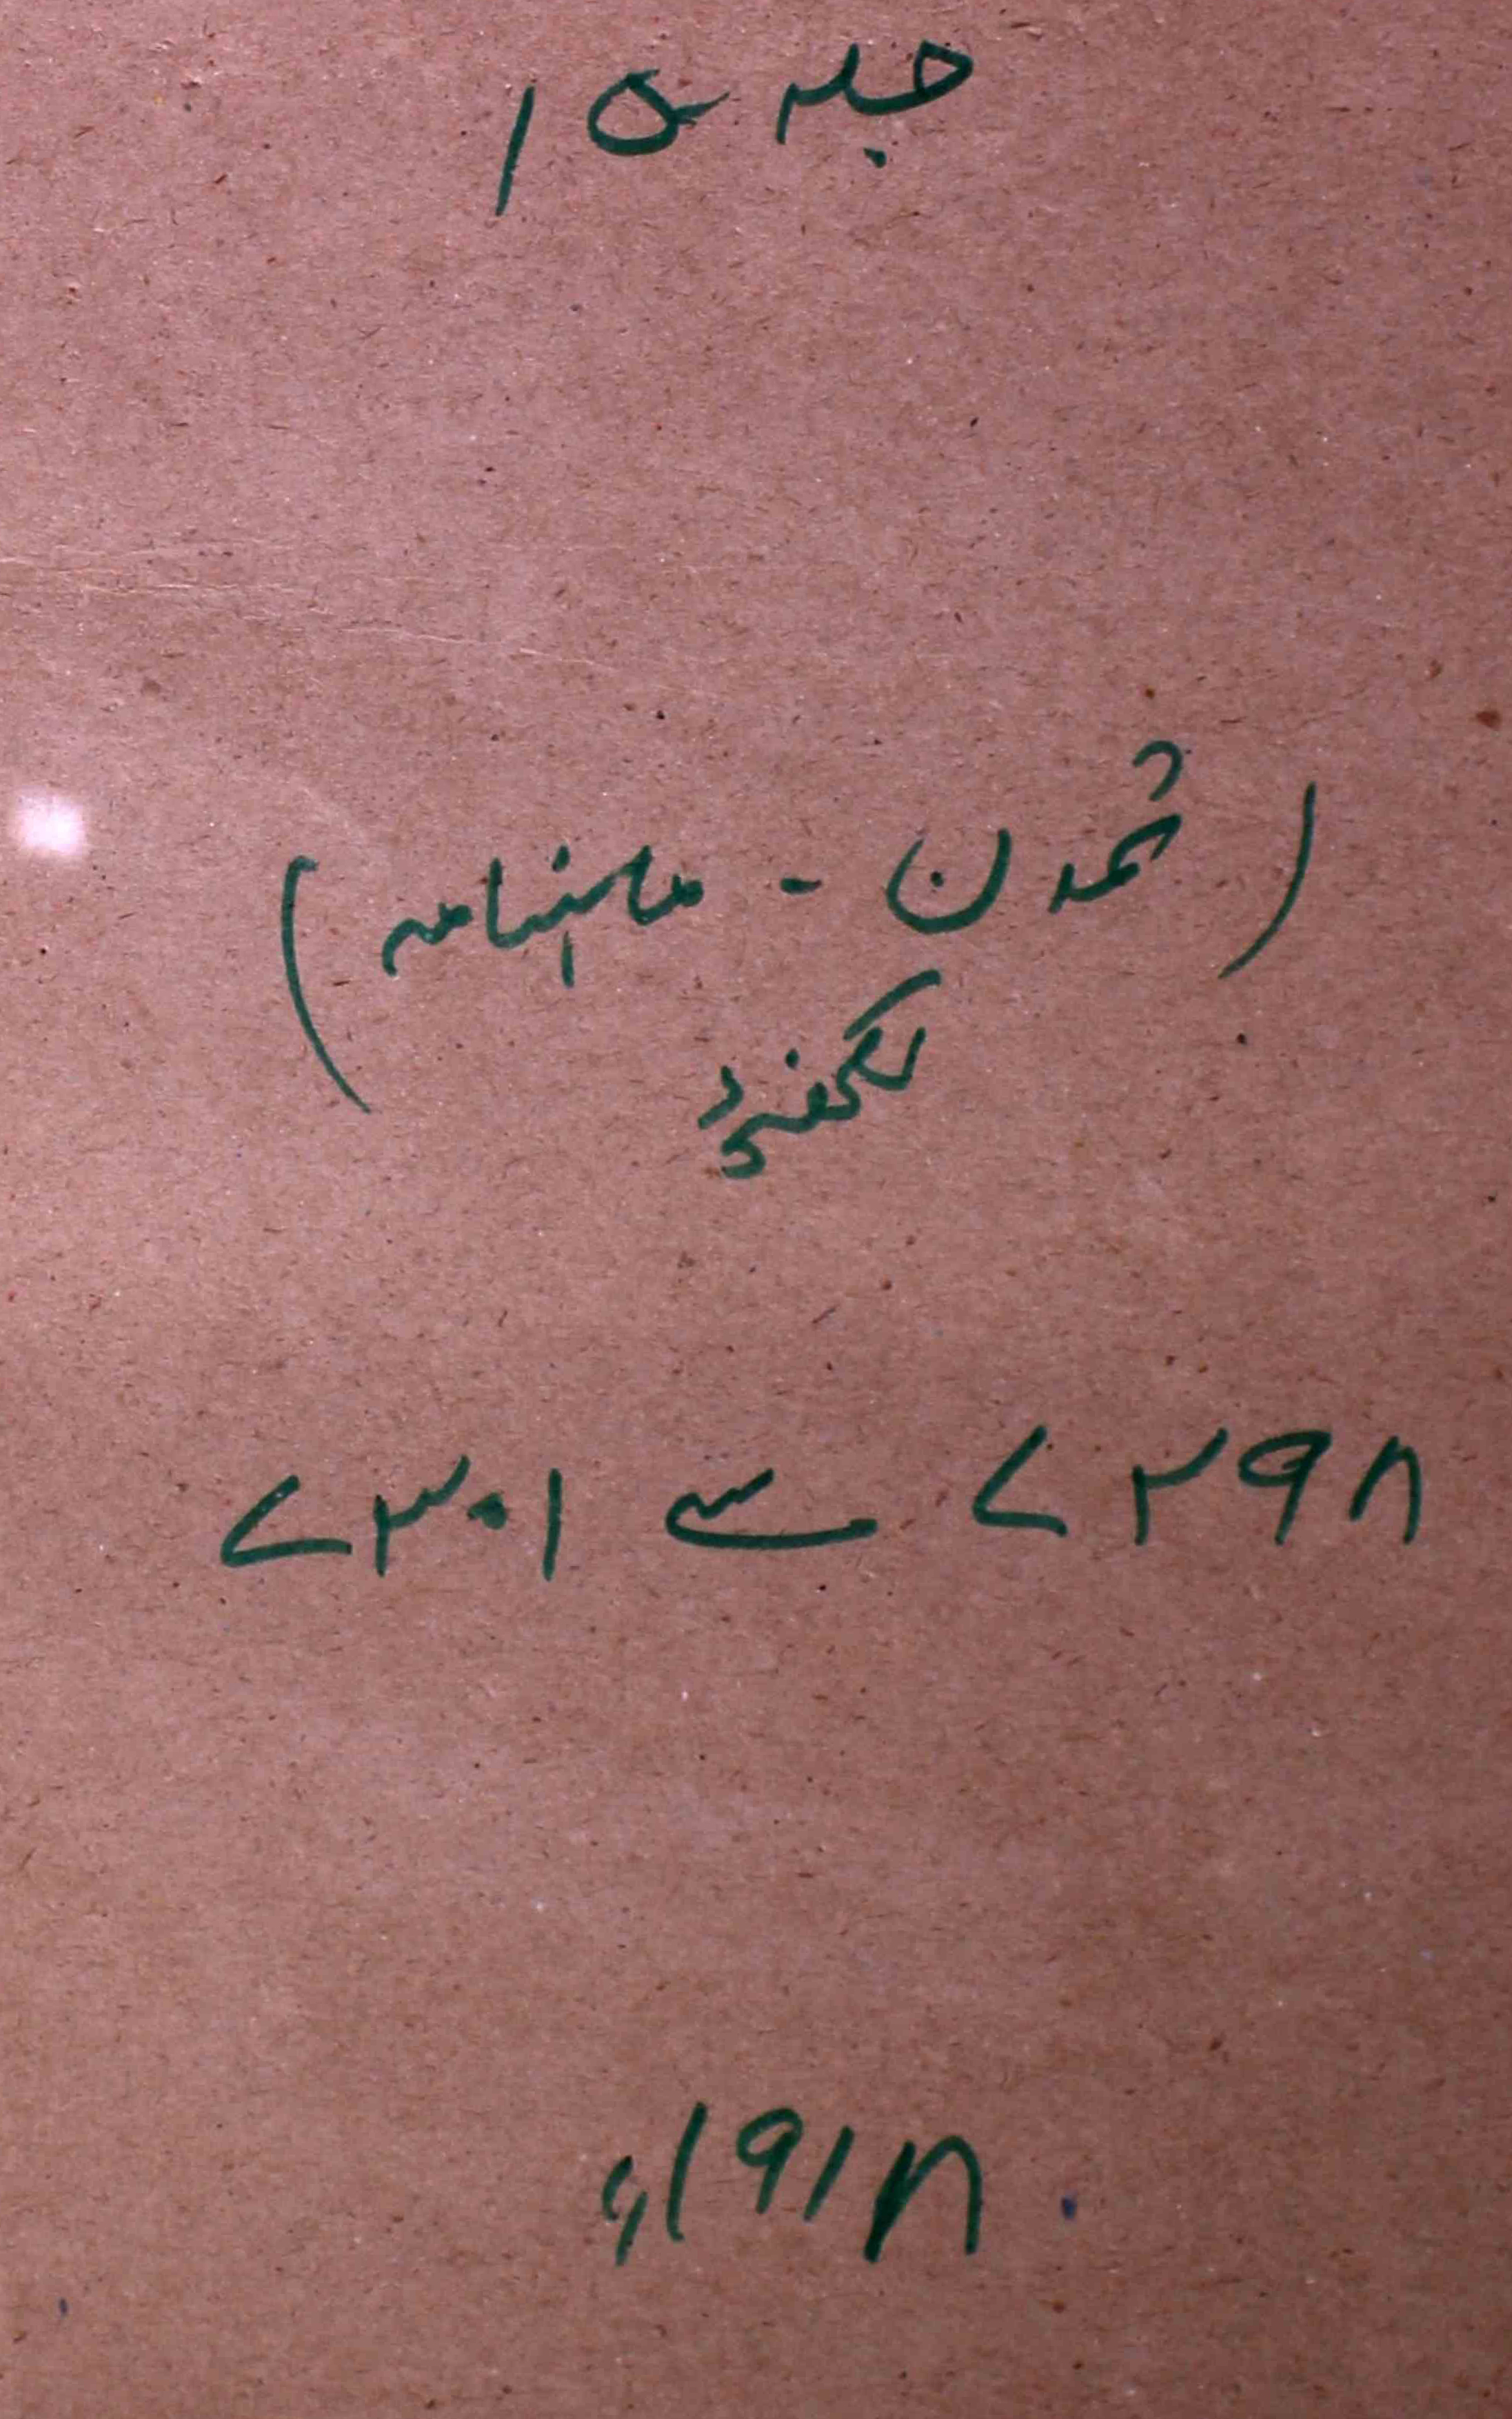 جلد ۱۵
(تمدن - ماہنامہ)
لکھنؤ
۷۲۹۸ سے ۷۳۰۱
۱۹۱۸ء